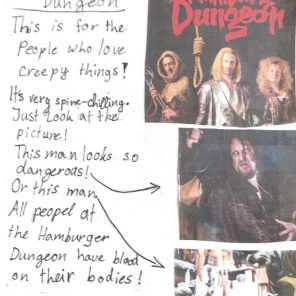 Dungeon
This is for the
People who love
creepy things!
It's very spine-chilling.
Just look at the
picture!
This man looks so
dangeroas!
Or this man.
All peopel at
the Hamburger
Dungeon have blood
on their bodies!
Dungeon